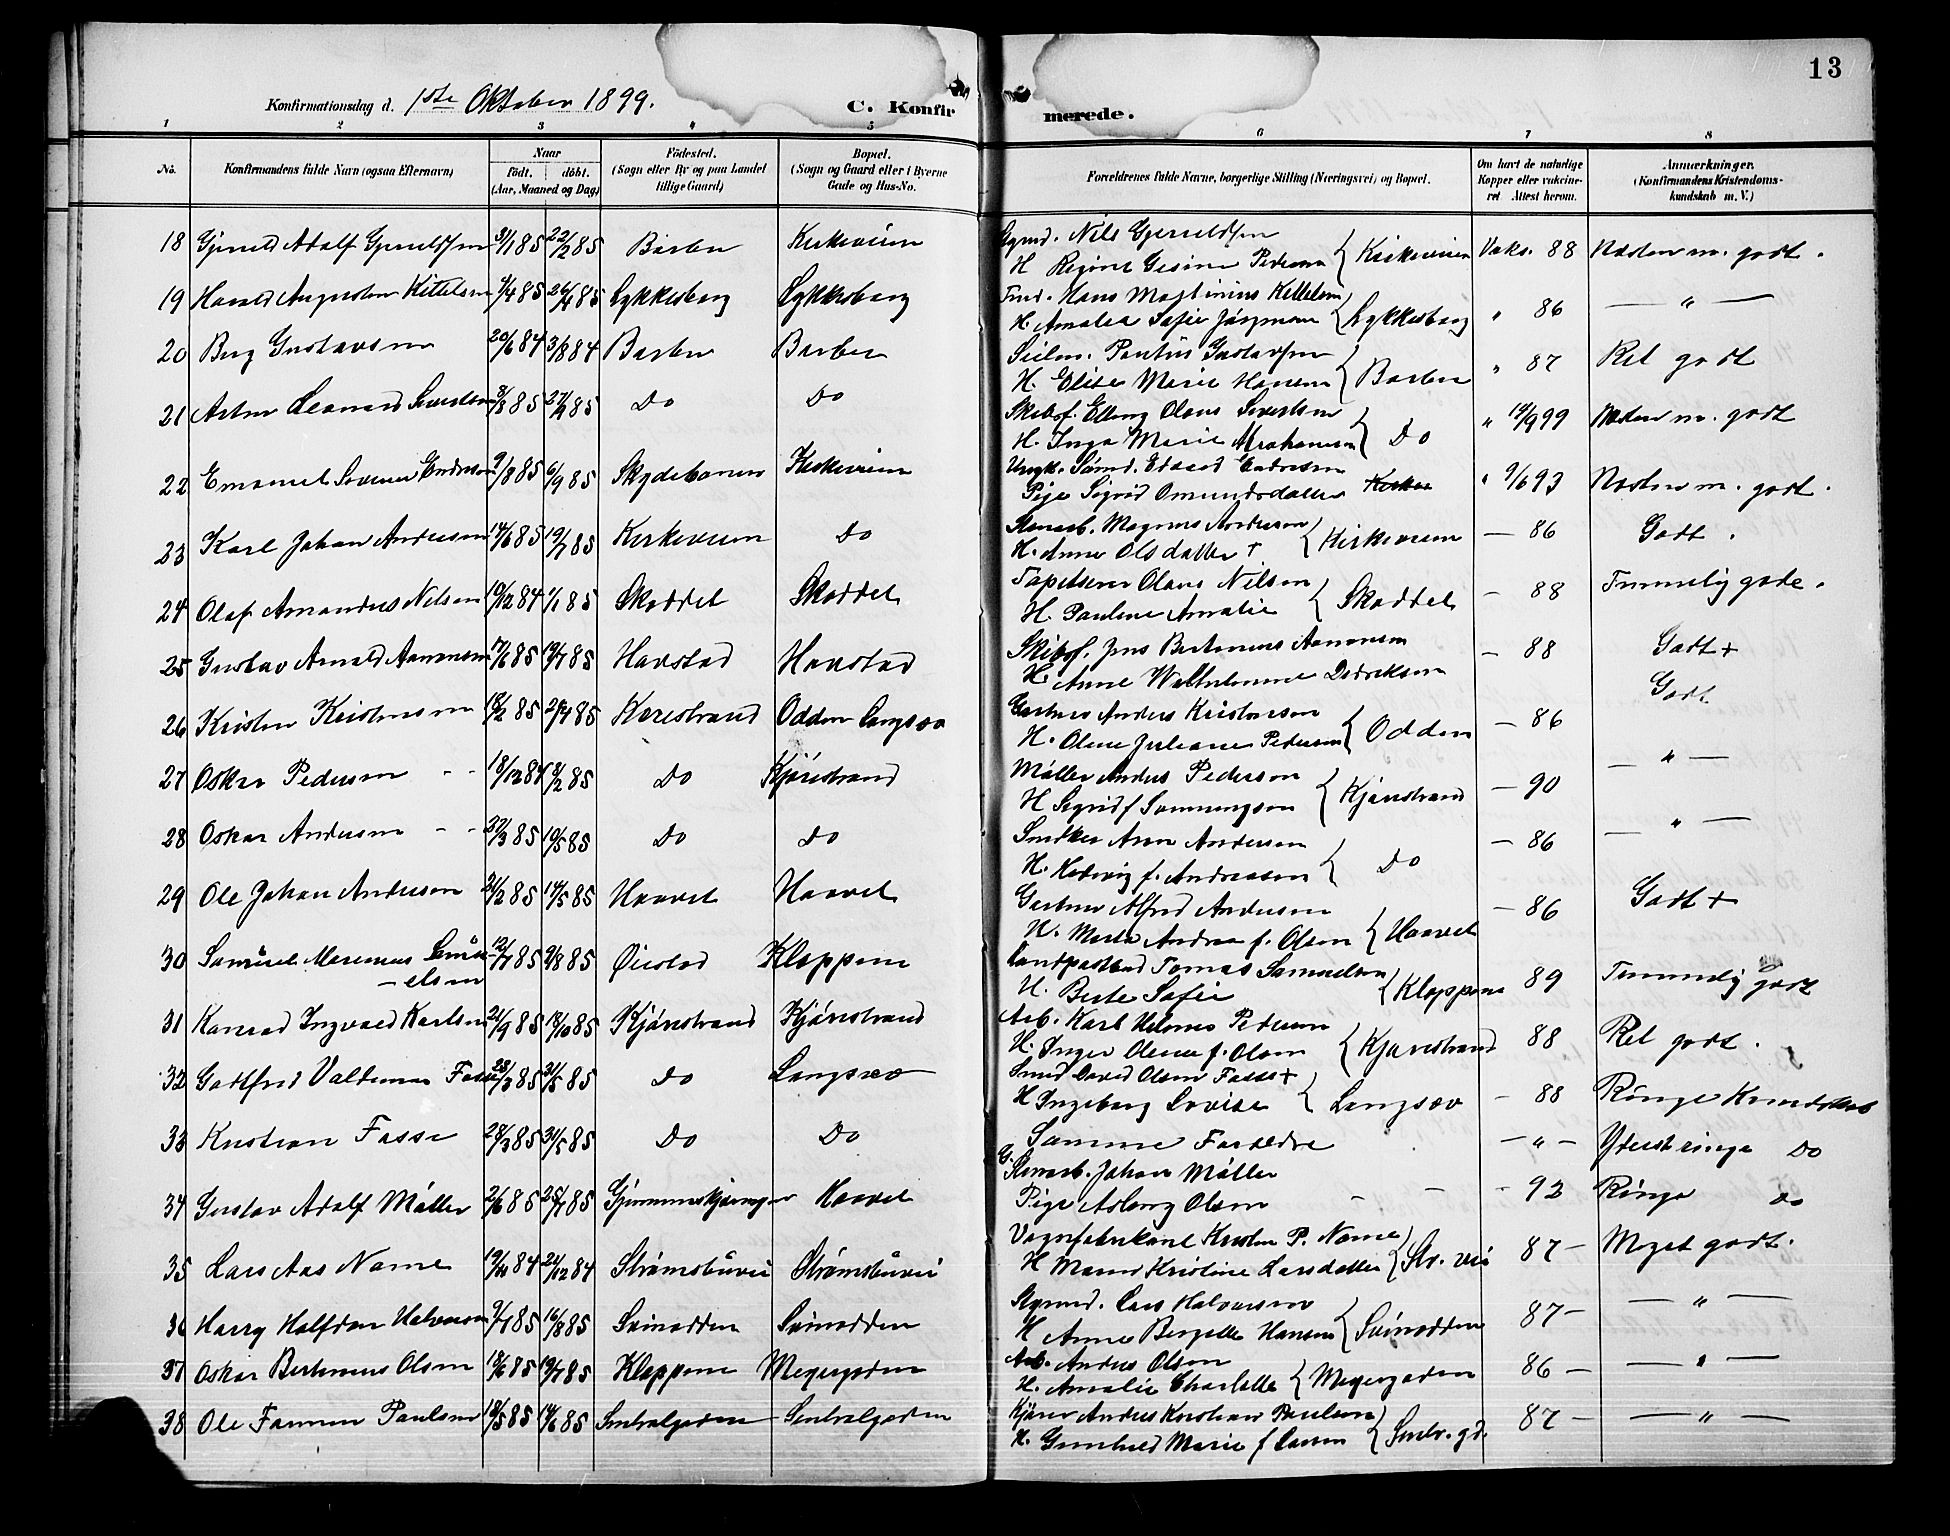 13
Konfirmationsdag d. 1ste Oktober 1899. C. Konfir merede.
1 2 3 4 5 6 7 8
No. Konfirmandens fulde Navn (ogsaa Efternavn) Naar født. døbt. (Aar, Maaned og Dag) Fødested. (Sogn eller By og paa Landet tillige Gaard) Bopæl. (Sogn og Gaard eller i Byerne Gade og Hus-No. Forældrenes fulde Navne, borgerlige Stilling (Næringsvei) og Bopæl. Om havt de naturlige Kopper eller vakcineret Attest herom. Anmærkninger. (Konfirmandens Kristendomskundskab m. V.)
18 Adolf 31/1 85 22/2 85 Barbu Kirkeveien Nils
H Regine Gesine Pedersen Kirkeveien Vaks. 88 Næsten m. godt.
19 Harald Kittelsen 7/4 85 26/4 85 Lykkesborg Lykkesborg Hans Kittelsen
H. Amalia Sofie Lykkesborg " 86 — " —
20 Berg Gustavsen 20/6 84 3/8 84 Barbu Barbu Pontus Gustavsen
H. Elise Marie Hansen Barbu " 87 Ret godt
21 Leonard Sivertsen 8/8 85 27/9 85 Do Do Skibsf. Olaus Sivertsen
H. Inga Marie Do " 19/9 99 Næsten m. godt
22 Emanuel Endresen 9/8 85 6/9 85 Skydebanen Kirkeveien Endresen
Pige Sigrid Omundsdatter " 9/6 93 Næsten m. godt.
23 Karl Johan Andersen 14/6 85 19/7 85 Kirkeveien Do Magnus Andersen
H. Anne Olsdatter + Kirkeveien — 86 Godt.
24 Olaf Amandus Nilsen 19/12 84 1/1 85 Skoddel Skoddel Tapetserer Olaus Nilsen
H. Pauline Amalie Skoddel — 88 Temmelig godt.
25 Gustav Arnold Aanonsen 17/6 85 19/7 85 Havstad Havstad Skibsf. Jens Bertinius Aanonsen
H. Anne Wilhelmine Didriksen — 88 Godt +
26 Kristen Kristensen 18/2 85 Odden Langsæv Gartner Anders Kristensen
H. Oline Juliane Pedersen Odden — 86 Godt
27 Oskar Pedersen - - 18/12 84 8/2 85 Do Kjørestrand Møller Anders Pedersen
H Kjørestrand — 90 — " —
28 Oskar Andersen - - 27/3 85 10/5 85 Do Do Snedker Andersen
H. Hedevig f. Andreasen Do — 86 — " —
29 Ole Johan Andersen 21/2 85 14/5 85 Haavet Haavet Gartner Alfred Andersen
H. Andrea f. Olsen Haavet — 86 Godt +
30 Samuel Samu- 12/7 85 9/8 85 Øiestad Kloppene Landpostbud Tomas Samuelsen
- elsen H. Berte Sofie Kloppene 89 Temmelig godt
31 Konrad Ingvald Karlsen 21/9 85 18/10 85 Kjørestrand Kjørestrand Arb. Karl Pedersen
H. Inger Olene f. Olsen Kjørestrand 88 Ret godt.
32 Godtfred Valdemar Fosse 28/3 85 31/5 85 Do Langsæv Smed David Olsen Fosse +
H Ingeborg Lovise Langsæv — 88 Ringe Kundskab
33 Kristian Fosse 28/3 85 31/5 85 Do Do Samme Forældre — " — Yderst ringe Do
34 Gustav Adolf Møller 2/6 85 Haavet G. Johan Møller
Pige Aslaug Olsen - - - 93 Ringe Do
35 Lars Aas Næme 19/10 84 21/12 84 Strømsbuvei Strømsbuvei Vognfabrikant Kristen P. Næme
H Maren Kristine Larsdatter Str. vei 87 — Meget godt.
36 Harry Halfdan Halvorsen 9/7 85 16/8 85 Svinodden Svinodden Lars Halvorsen
H Anne Hansen Svinodden 87 — — " —
37 Oskar Bertinius Olsen 18/6 85 19/7 85 Kloppene Meyergaden Arb. Anders Olsen
H. Amalie Charlotte Meyergaden 86 — — " —
38 Ole Paulsen 18/5 85 14/6 85 Sentralgaden Sentralgaden Anders Kristian Paulsen
H. Gunhild Marie f Larsen Sentr. gd. 87 — — " —